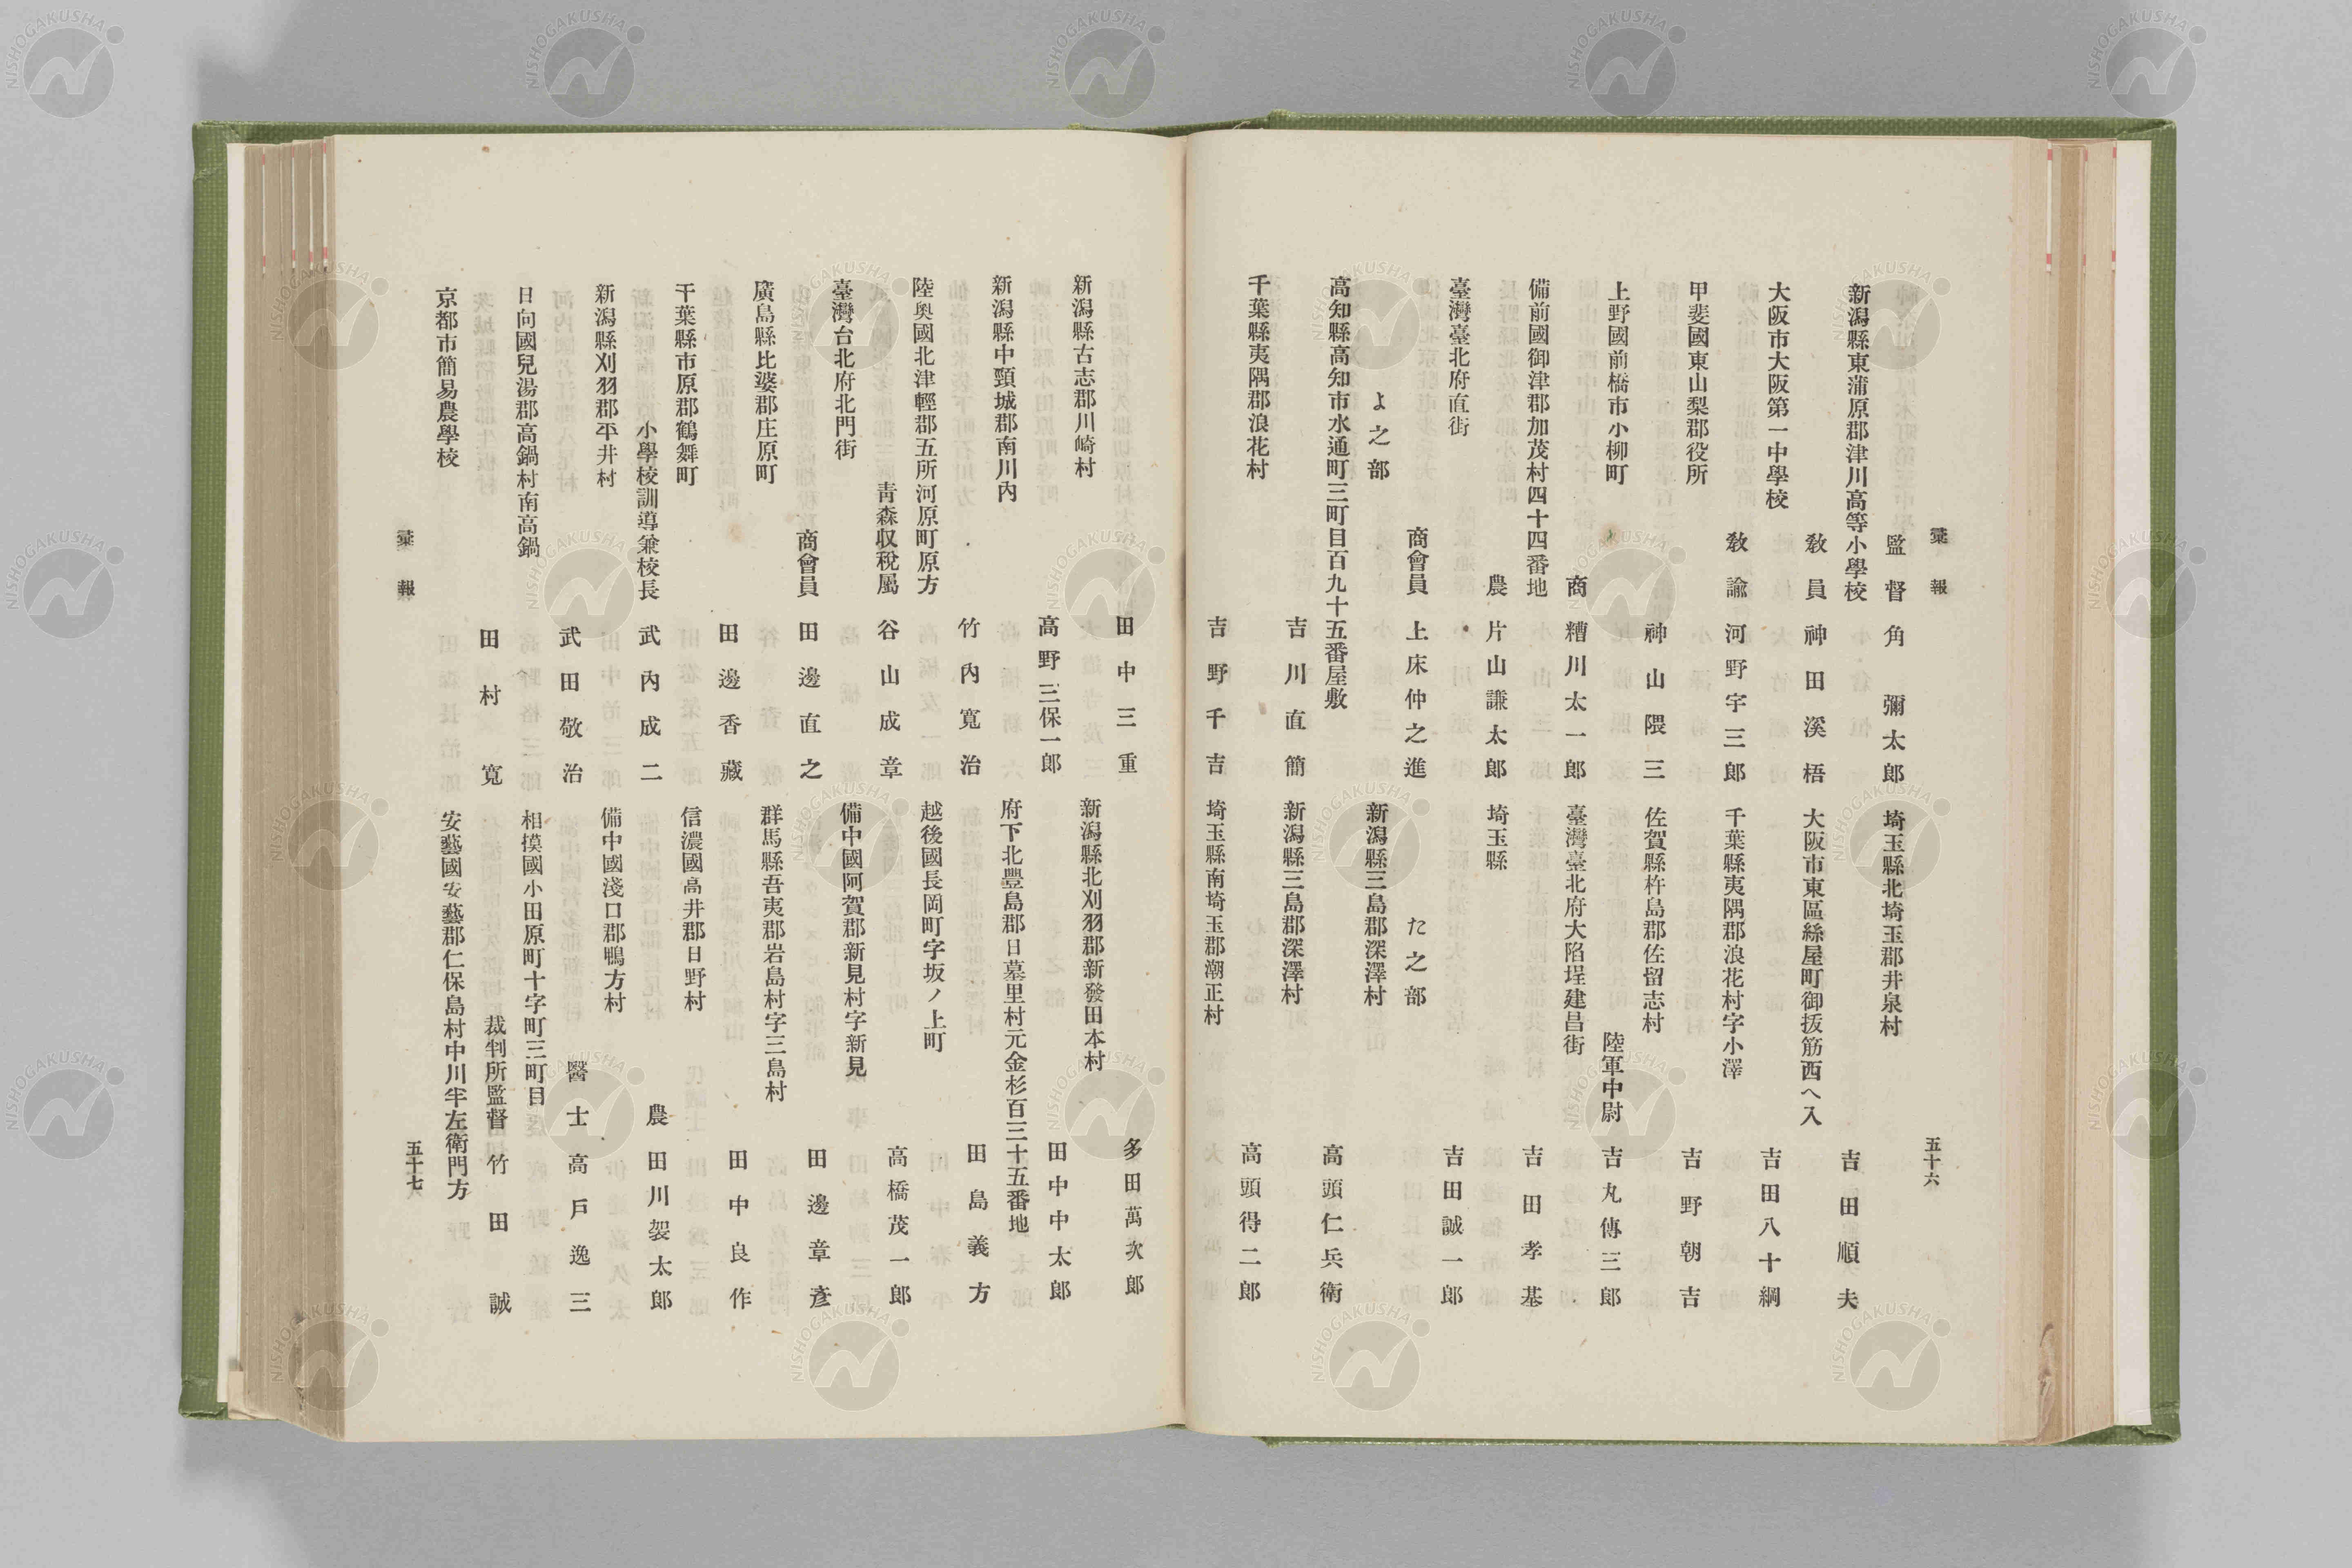 彙報
監督 角彌太郎
新潟縣東蒲原郡津川高等小學校
教員 神田溪梧
大阪市大阪第一中學校
教諭 河野宇三郎
甲斐國東山梨郡役所
神山隈三
上野國前橋市小柳町
商 糟川太一郎
備前國御津郡加茂村四十四番地
農 片山謙太郎
臺灣臺北府直街
商會員 上床仲之進
よ之部
高知縣高知市水通町三町目百九十五番屋敷
吉川直簡
千葉縣夷隅郡浪花村
吉野千吉
埼玉縣北埼玉郡井泉村
吉田順夫
大阪市東區絲屋町御抜筋西へ入
吉田八十綱
千葉縣夷隅郡浪花村字小澤
吉野朝吉
佐賀縣杵島郡佐留志村
陸軍中尉 吉丸傳三郎
臺灣臺北府大陷埕建昌街
吉田孝基
埼玉縣
吉田誠一郎
た之部
新潟縣三島郡深澤村
高頭仁兵衛
新潟縣三島郡深澤村
高頭得二郎
埼玉縣南埼玉郡潮正村
五十六
田中三重
新潟縣古志郡川崎村
高野三保一郎
新潟縣中頸城郡南川內
竹內寬治
陸奧國北津輕郡五所河原町原方
靑森收稅屬 谷山成章
臺灣台北府北門街
商會員 田邊直之
廣島縣比婆郡庄原町
田邊香藏
千葉縣市原郡鶴舞町
小學校訓導兼校長 武內成二
新潟縣刈羽郡平井村
武田敬治
日向國兒湯郡高鍋村南高鍋
田村寬
京都市簡易農學校
多田萬次郎
新潟縣北刈羽郡新發田本村
田中中太郎
府下北豐島郡日墓里村元金杉百三十五番地
田島義方
越後國長岡町字坂ノ上町
高橋茂一郎
備中國阿賀郡新見村字新見
田邊章彥
群馬縣吾夷郡岩島村字三島村
田中良作
信濃國高井郡日野村
農 田川袈太郎
備中國淺口郡鴨方村
醫士 高戶逸三
相摸國小田原町十字町三町目
裁判所監督 竹田誠
安藝國安藝郡仁保島村中川半左衛門方
彙報
五十七